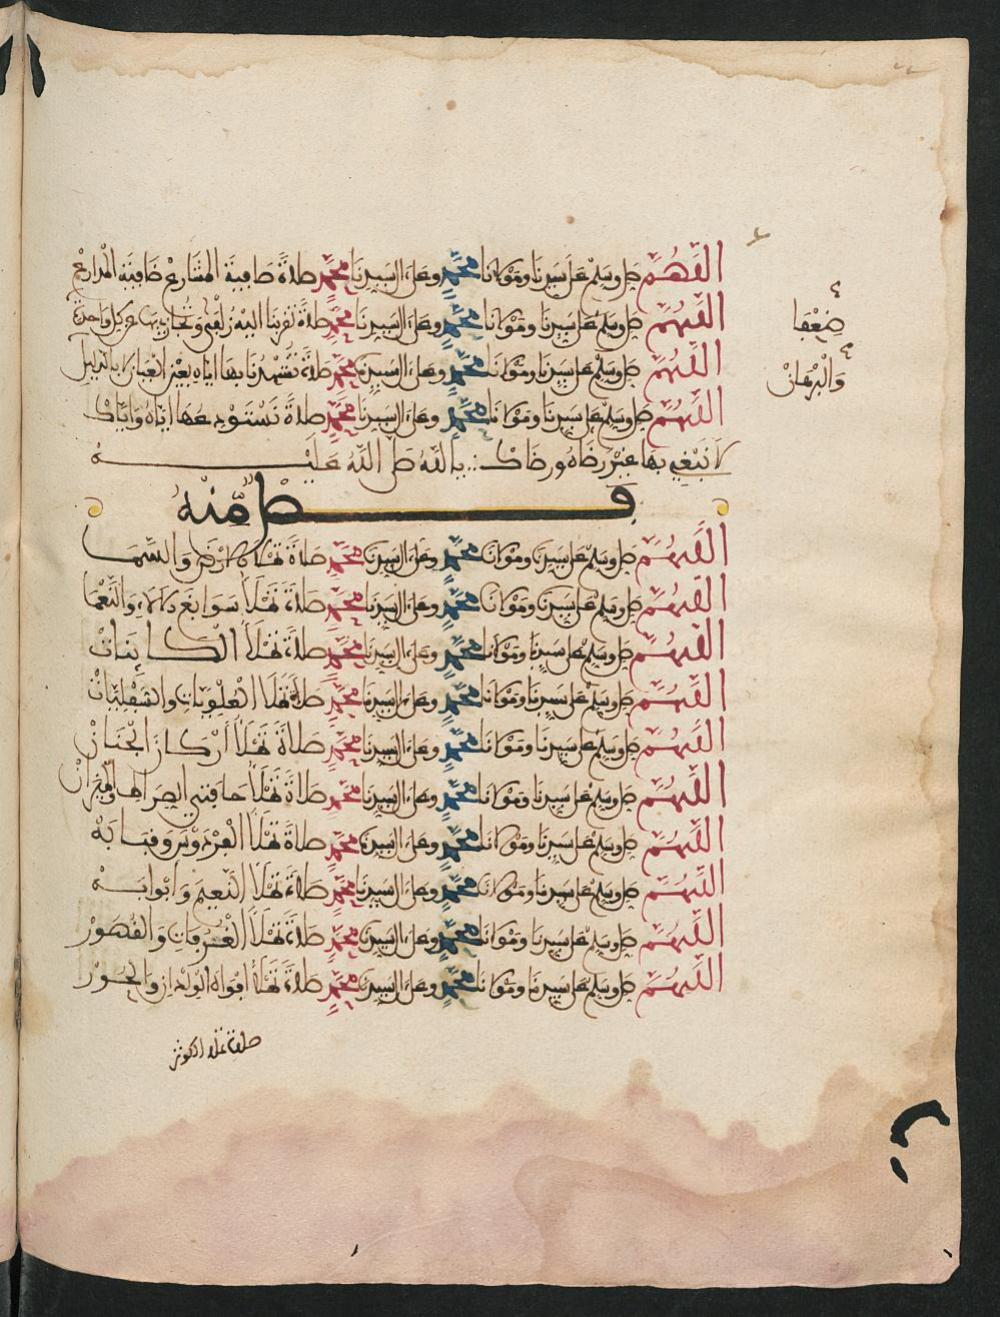 اللهم صل وسلم على سيدنا ومولانا محمد وعلى السيدنا محمد صلاة صافية المشارع ضافية المدارع
ضعفا
اللهم صل وسلم على سيدنا ومولانا محمد وعلى السيدنا محمد صلاة تقربنا اليه زلفى ونجازى بها عن كل واحدة
والبرهان
اللهم صل وسلم على سيدنا ومولانا محمد وعلى السيدنا محمد صلاة تشهدنا بها اياه بعين العيان لا بالدليل
اللهم صل وسلم على سيدنا ومولانا محمد وعلى السيدنا محمد صلاة نستودعها اياه واياك
لا نبتغي بها غير رضاه ورضاك يا الله صل الله عليه
فصل منه
اللهم صل وسلم على سيدنا ومولانا محمد وعلى السيدنا محمد صلاة تملأ الارض والسما
اللهم صل وسلم على سيدنا ومولانا محمد وعلى السيدنا محمد صلاة تملأ سوابغ الالاء والنعما
اللهم صل وسلم على سيدنا ومولانا محمد وعلى السيدنا محمد صلاة تملأ الكاينات
اللهم صل وسلم على سيدنا ومولانا محمد وعلى السيدنا محمد صلاة تملأ العلويات والسفليات
اللهم صل وسلم على سيدنا ومولانا محمد وعلى السيدنا محمد صلاة تملأ اركان الجنان
اللهم صل وسلم على سيدنا ومولانا محمد وعلى السيدنا محمد صلاة تملأ حافتي الصراط والميزان
اللهم صل وسلم على سيدنا ومولانا محمد وعلى السيدنا محمد صلاة تملأ الفردوس وقبابه
اللهم صل وسلم على سيدنا ومولانا محمد وعلى السيدنا محمد صلاة تملأ النعيم وابوابه
اللهم صل وسلم على سيدنا ومولانا محمد وعلى السيدنا محمد صلاة تملأ الغرفات والقصور
اللهم صل وسلم على سيدنا ومولانا محمد وعلى السيدنا محمد صلاة تملأ افواه الولدان والحور
صلاة تملأ الكوثر